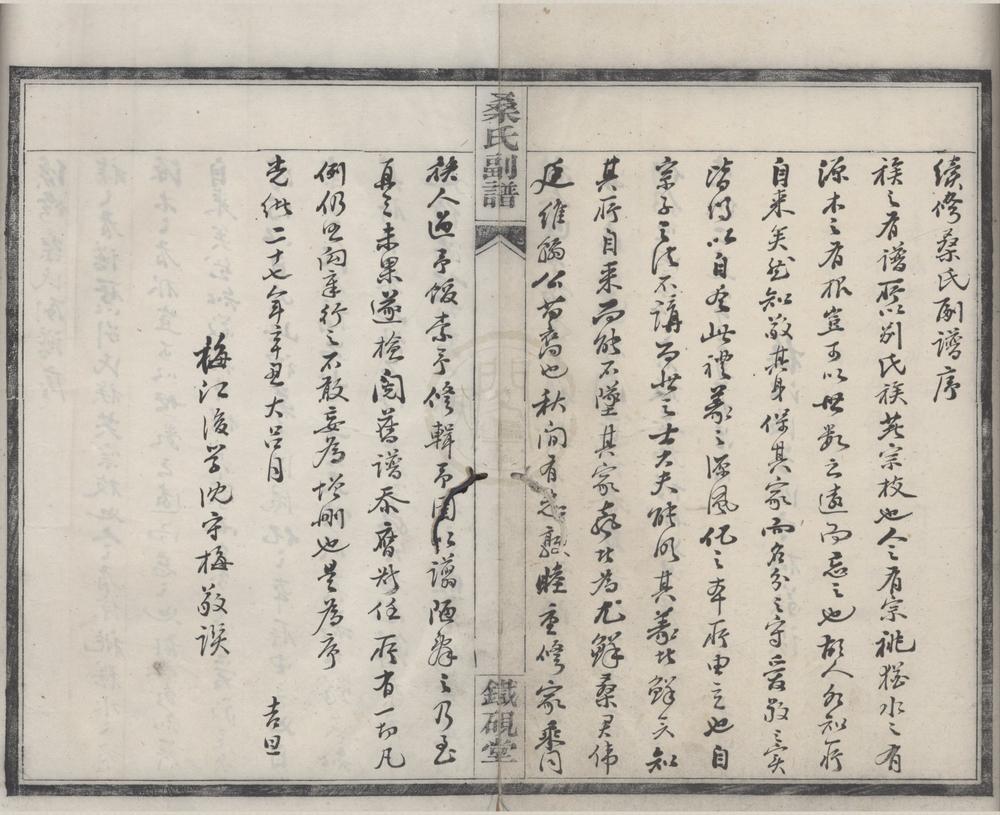 續修桑氏副譜序
族之有譜所以别氏族共宗枝也人之有宗祧猶水之有
源木之有根豈可以世數之遠而忘之也故人必知所
自来矣然知敬其身保其家而名分之守爱敬之实
皆得以自尽此禮義之源風化之本所由立也自
宗子之法不講而世之士大夫能明其義者鮮矣知
其所自来而能不墜其家声者為尤鮮桑君偉
廷維翰公苗裔也秋間有志親睦重修家乘同
族人过予飯索予修輯予固以譾陋辞之乃至
再三未果遂檢閱舊譜忝膺斯任所有一切凡
例仍照向章行之不敢妄為增刪也是為序
光緒二十七年辛丑大吕月 吉旦
梅江後学沈守梅敬譔
桑氏副譜
鐵硯堂